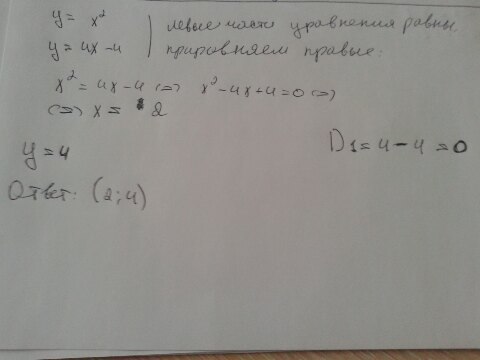 y = x²
y = 4x - 4
левые части уравнения равны,
приравняем правые:
x² = 4x - 4 <=> x² - 4x + 4 = 0 <=>
<=> x = 2
y = 4
D₁ = 4 - 4 = 0
Ответ: (2; 4)